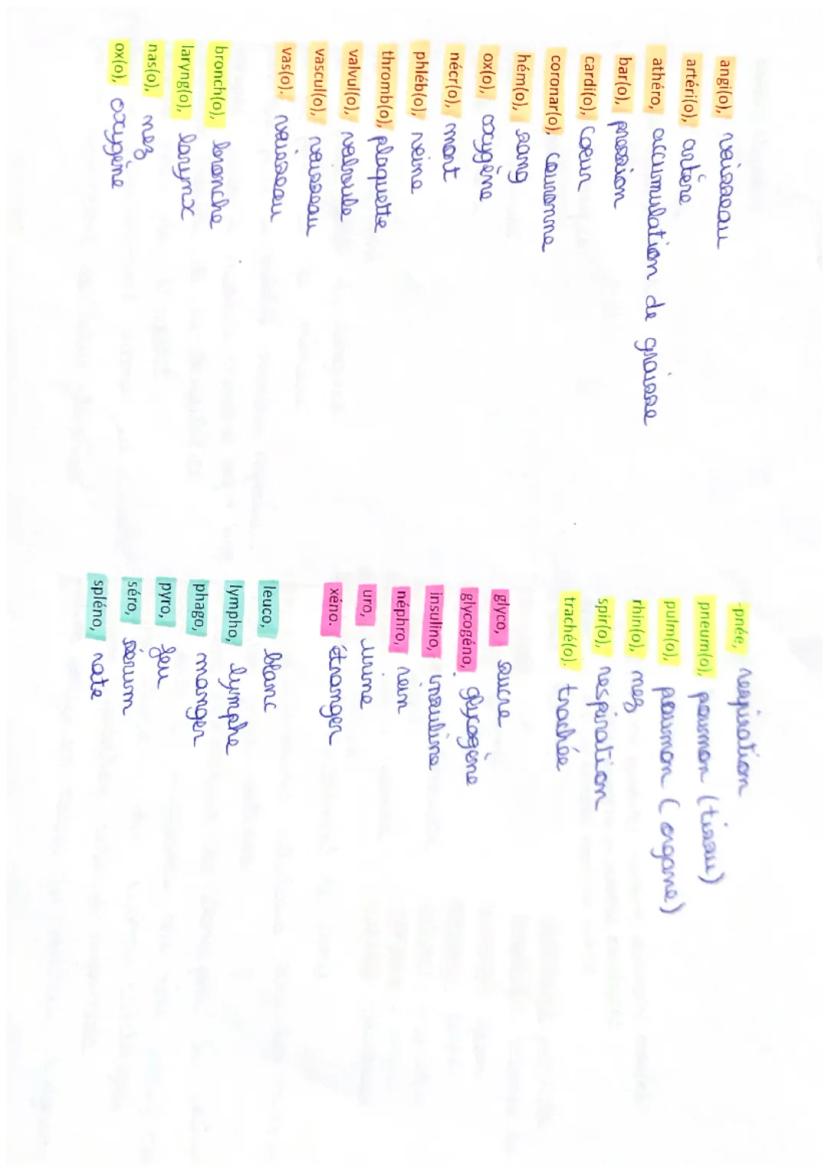 angi(o), vaisseau
artéri(o), artère
athéro, accumulation de graisse
bar(o), pression
cardi(o), coeur
coronar(o), couronne
hém(o), sang
ox(o), oxygène
nécr(o), mort
phléb(o), veine
thromb(o), plaquette
valvul(o), valvule
vascul(o), vaisseau
vas(o). vaisseau
bronch(o), bronche
laryng(o), larynx
nas(o), nez
ox(o), oxygène
-pnée, respiration
pneum(o), poumon (tissu)
pulm(o), poumon (organe)
rhin(o), nez
spir(o), respiration
traché(o). trachée
glyco, sucre
glycogéno, glycogène
insulino, insuline
néphro, rein
uro, urine
xéno. étranger
leuco, blanc
lympho, lymphe
phago, manger
pyro, feu
séro, serum
spléno, rate